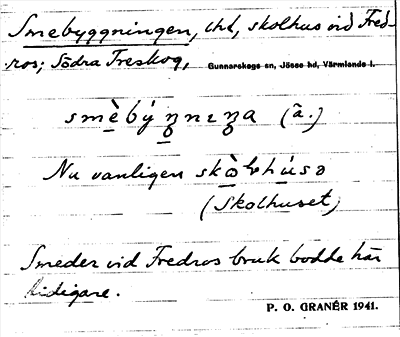 Smebyggningen, thl, skolhus vid Fred-
ros; Södra Treskog, Gunnarskogs sn, Jösse hd, Värmlands l.
smèbý ŋnɪŋa (ā.)
Nu vanligen skòlhúsə
(Skolhuset)
Smeder vid Fredros bruk bodde här
tidigare.
P. O. GRANÉR 1941.